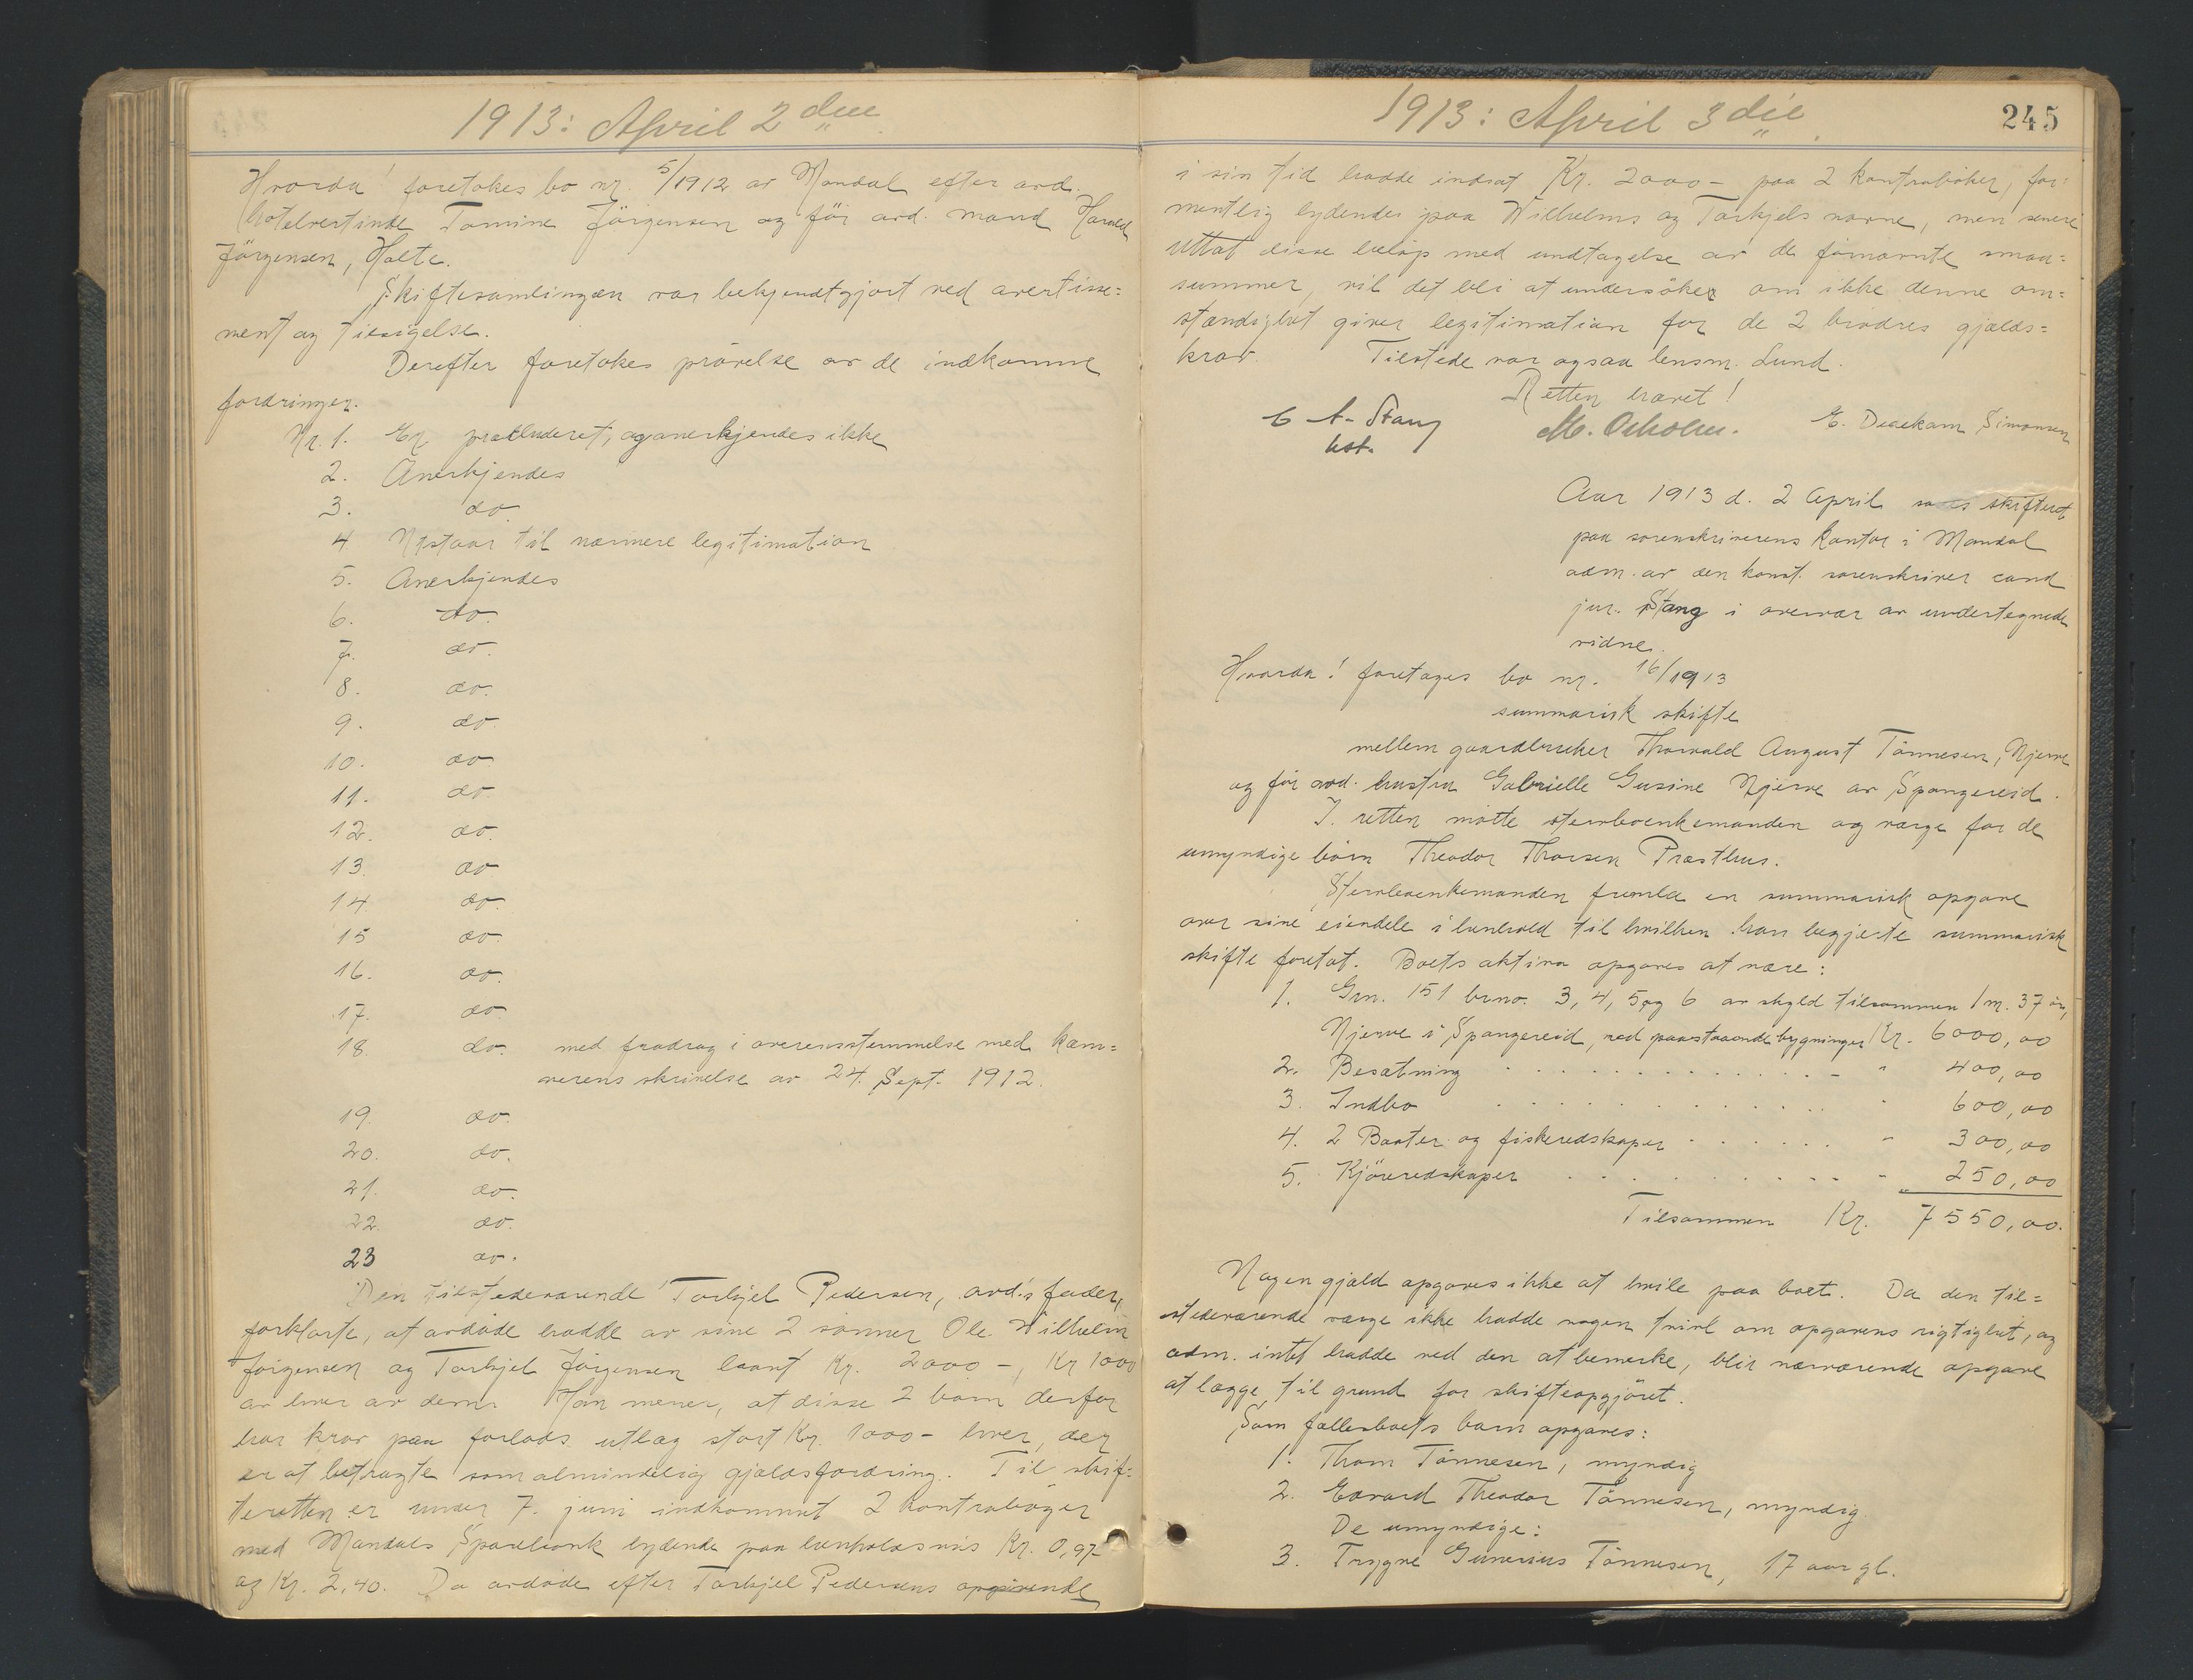 1913: April 2den
Hvorda! foretokes bo nr. 5/1912 av Mandal efter avd.
hotelvertinde Tomine Jörgensen og för avd. mand Harald
Jörgensen, Holte.
Skiftesamlingen var bekjendtgjort ved avertisse=
ment og tilsigelse.
Derefter foretokes prövelse av de indkomne
fordringer.
Nr. 1. Er præcluderet, og anerkjendes ikke
2. Anerkjendes
3. do
4 Utstaar til nærmere legitimation
5. Anerkjendes
6. do.
7. do.
8. do.
9. do.
10. do
11. do.
12. do.
13. do
14. do.
15 do.
16. do.
17. do
18 do. med fradrag i overensstemmelse med kæm=
nerens skrivelse av 24. Sept. 1912.
19. do.
20. do.
21. do.
22. do.
23 do.
Den tilstedeværende Torkjel Pedersen, avd's fader,
forklarte, at avdöde hadde av sine 2 sönner Ole Wilhelm
Jörgensen og Torkjel Jörgensen laant Kr. 2000 -, Kr 1000
av hver av dem. Han mener, at disse 2 barn derfor
har krav paa forlods utlæg stort Kr. 1000 - hver, der
er at betragte som almindelig gjældsfordring. Til skif=
teretten er under 7. juni indkommet 2 kontraböger
med Mandals Sparebank lydende paa henholdsvis Kr. 0,97-
og Kr. 2,40. Da avdöde efter Torkjel Pedersens opgivende
1913: April 3die
245
i sin tid hadde indsat Kr. 2000 - paa 2 kontraböker, for=
mentlig lydendes paa Wilhelms og Torkjels navne, men senere
uttat disse belöp med undtagelse av de förnævnte smaa=
summer, vil det bli at undersöker om ikke denne om=
stændighet giver legitimation for de 2 brödres gjælds=
krav. Tilstede var ogsaa lensm. Lund.
Retten hævet!
C A. Stang M. Oxholm. E. Simonsen
kst.
Aar 1913 d. 2 April sattes skifteret
paa sorenskriverens kontor i Mandal
adm. av den konst. sorenskriver cand
jur. Stang i overvær av undertegnede
vidne.
Hvorda! foretages bo nr. 16/1913
summarisk skifte
mellem gaardbruker Thorvald August Tönnesen, Njerve
og för avd. hustru Gabrielle Gusine Njerve av Spangereid.
I retten mötte sterboenkemanden og værge for de
umyndige börn Theodor Thorsen Præsthus.
Sterboenkemanden fremla en summarisk opgave
over sine eiendele i henhold til hvilken han begjærte summarisk
skifte foretat. Boets aktiva opgaves at være:
1. Grn. 151 brno. 3, 4, 5 og 6 av skyld tilsammen 1 m. 37 öre,
Njerve i Spangereid, ved paastaaende bygninger Kr. 6000,00
2. Besætning - " 400,00
3. Indbo " 600,00
4. 2 Baater og fiskeredskaper " 300,00
5. Kjöreredskaper " 250,00
Tilsammen Kr. 7550,00.
Nogen gjæld opgaves ikke at hvile paa boet. Da den til=
stedeværende værge ikke hadde nogen tvivl om opgavens rigtighet, og
adm. intet hadde ved den at bemerke, blir nærværende opgave
at lægge til grund for skifteopgjöret.
Som fællesboets barn opgaves:
1. Thom Tönnesen, myndig
2. Edvard Theodor Tönnesen, myndig
De umyndige:
3. Trygve Gunerius Tönnesen, 17 aar gl.